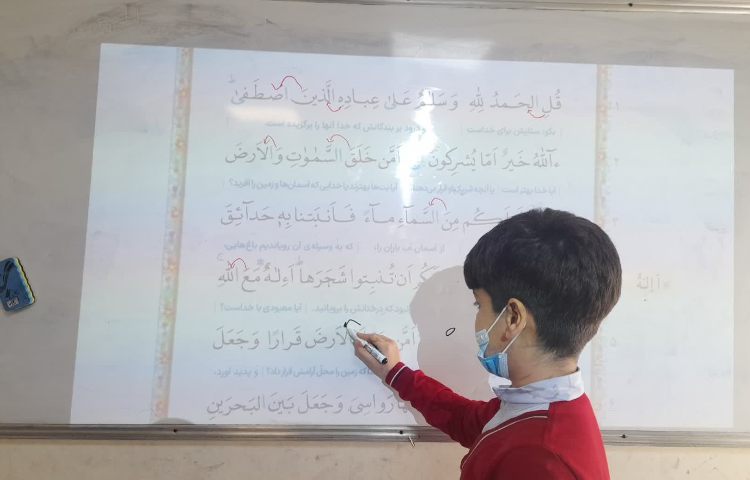 قُلِ الحَمدُ لِلّٰهِ وَسَلٰمٌ عَلىٰ عِبادِهِ الَّذينَ اصطَفىٰ
بگو: ستایش برای خداست | و درود بر بندگانش که خدا آنها را برگزیده است
ءآللهُ خَیرٌ اَمّا یُشرِکونَ اَمَّن خَلَقَ السَّمٰوٰتِ وَالاَرضَ
آیا خدا بهتر است | یا آنچه شریک او قرار می‌دهند | آیا بت‌ها بهترند یا خدایی که آسمان‌ها و زمین را آفرید؟
لَکُم مِنَ السَّمآءِ مآءً فَاَنبَتنا بِهٖ حَدآئِقَ
از آسمان آب باران را، | که به وسیله‌ی آن رویاندیم باغ‌هایی،
اَن تُنبِتوا شَجَرَها ءَاِلٰهٌ مَعَ اللهِ
که درختانش را برویانید. | آیا معبودی با خداست؟
اَمَّن الاَرضَ قَرارًا وَ جَعَلَ
که زمین را محل آرامش قرار داد؟ | و پدید آورد،
رَواسِیَ وَ جَعَلَ بَینَ البَحرَینِ